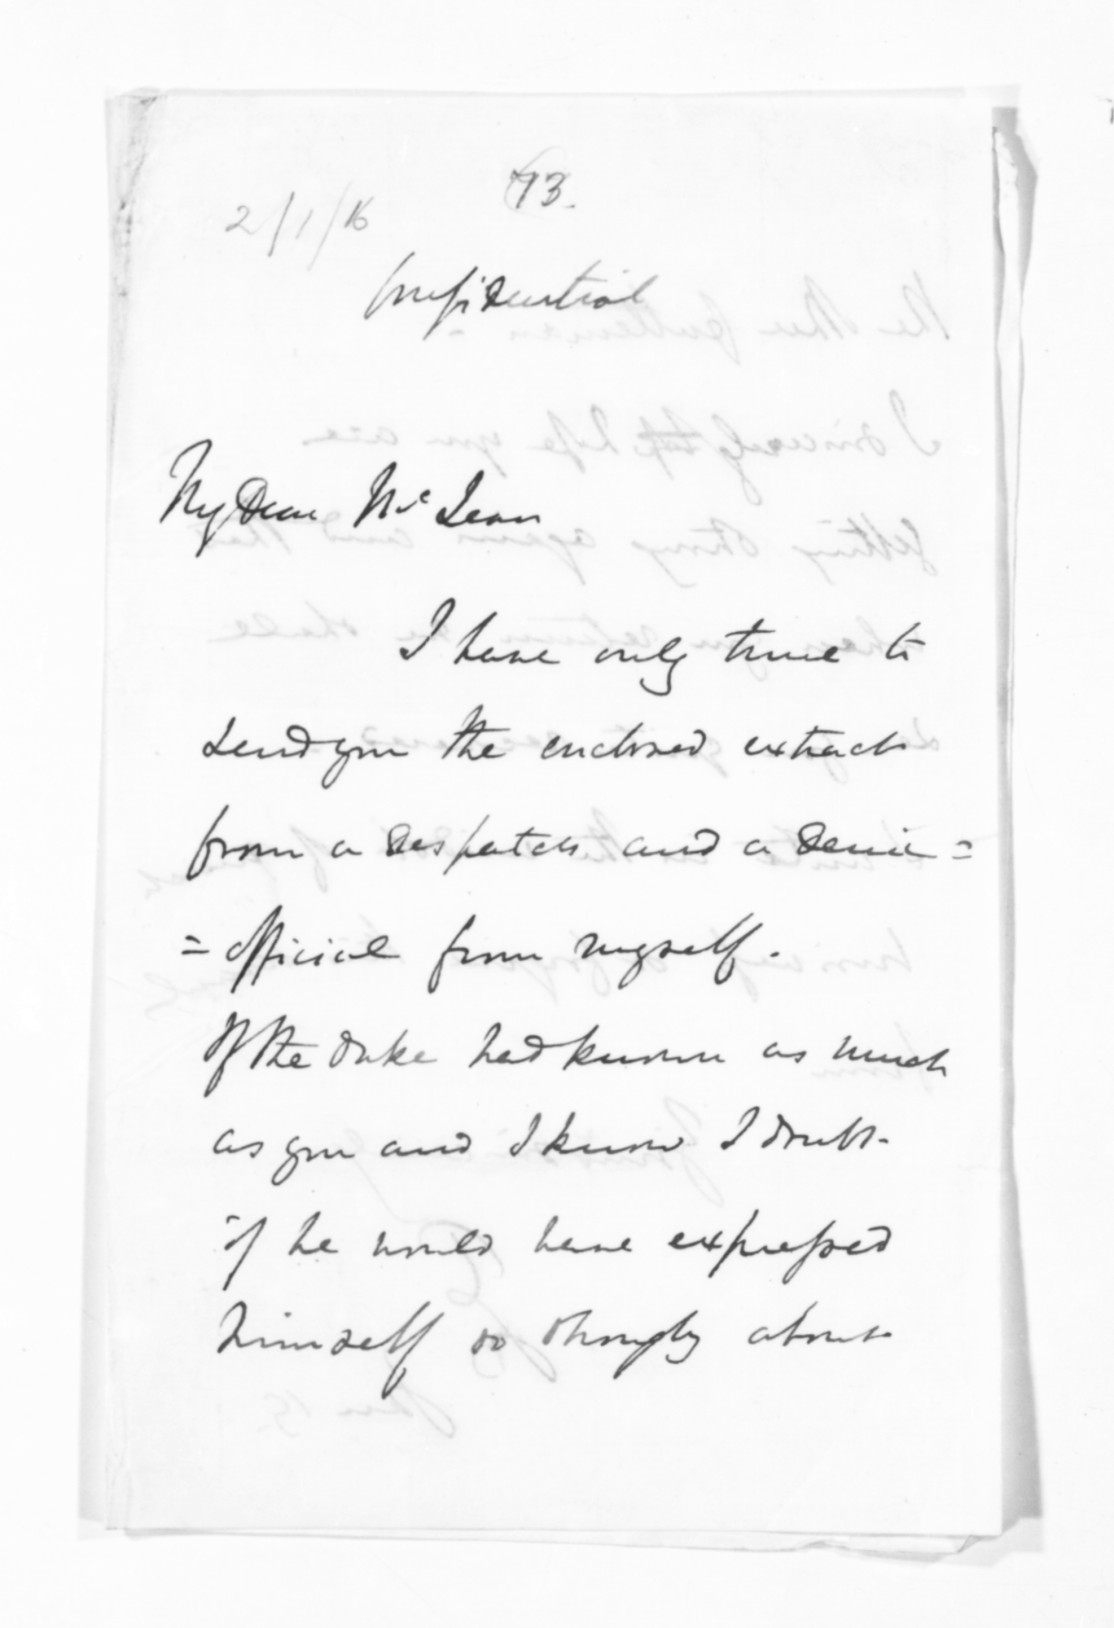 73.
2/1/16
Confidential
My Dear McLean
I have only time to
send you the enclosed extract
from a despatch and a demi=
=official from myself.
If the Duke had known as much
as you and I know I doubt
if he would have expressed
himself so strongly about